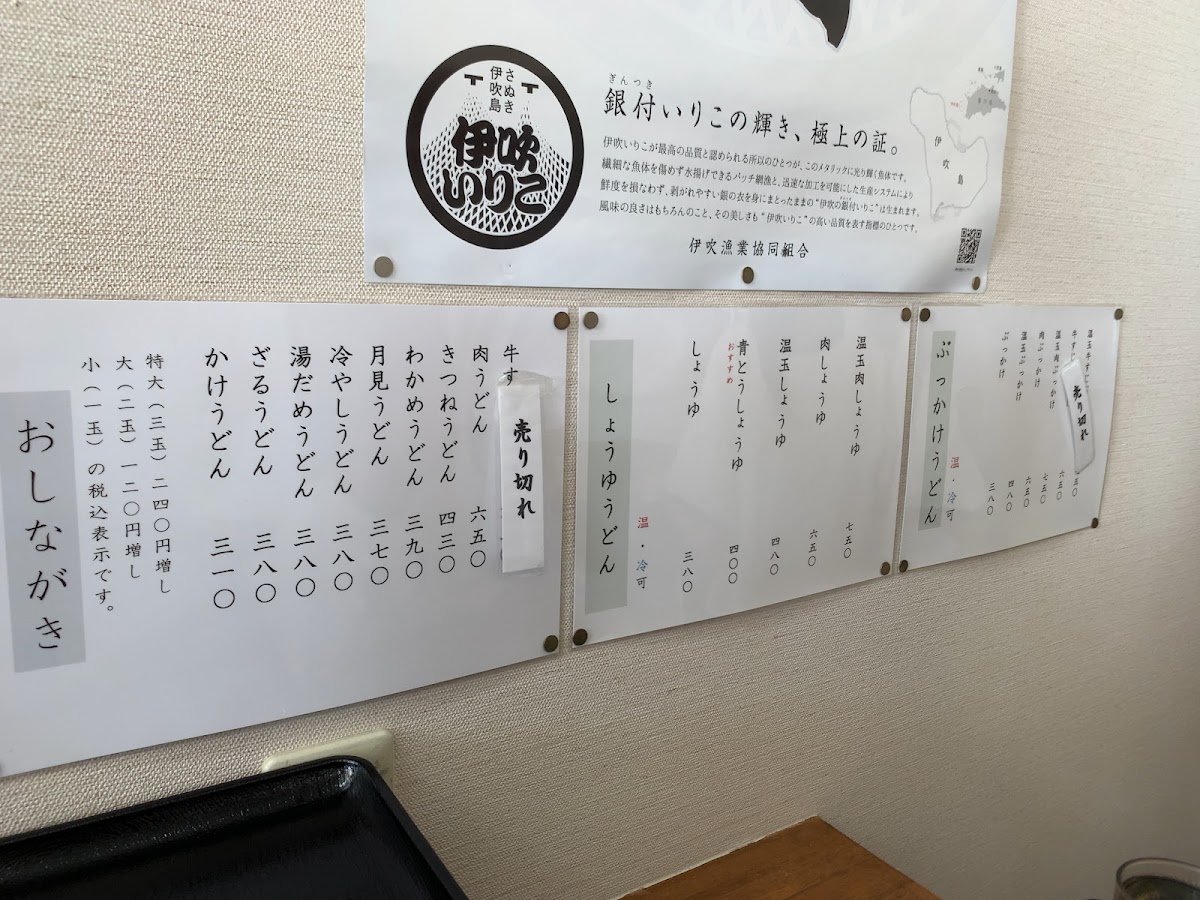 さぬき
伊吹島
伊吹
いりこ
ぎんつき
銀付いりこの輝き、極上の証。
伊吹いりこが最高の品質と認められる所以のひとつが、このメタリックに光り輝く魚体です。
繊細な魚体を傷めず水揚げできるバッチ網漁と、迅速な加工を可能にした生産システムにより
鮮度を損なわず、剥がれやすい銀の衣を身にまとったままの“伊吹の銀付いりこ”は生まれます。
風味の良さはもちろんのこと、その美しさも“伊吹いりこ”の高い品質を表す指標のひとつです。
伊吹漁業協同組合
伊吹島
温玉牛すじ
牛すじ
売り切れ
五〇
温玉肉ぶっかけ
肉ぶっかけ 七五〇
温玉ぶっかけ 六五〇
ぶっかけ
四八〇
三八〇
温・冷可
ぶっかけうどん
温玉肉しょうゆ 七五〇
肉しょうゆ 六五〇
温玉しょうゆ 四八〇
青とうしょうゆ 四〇〇
おすすめ
しょうゆ 三八〇
温・冷可
しょうゆうどん
牛す
売り切れ
肉うどん 六五〇
きつねうどん 四三〇
わかめうどん 三九〇
月見うどん 三七〇
冷やしうどん 三八〇
湯だめうどん 三八〇
ざるうどん 三八〇
かけうどん 三一〇
特大(三玉)二四〇円増し
大(二玉)一二〇円増し
小(一玉)の税込表示です。
おしながき